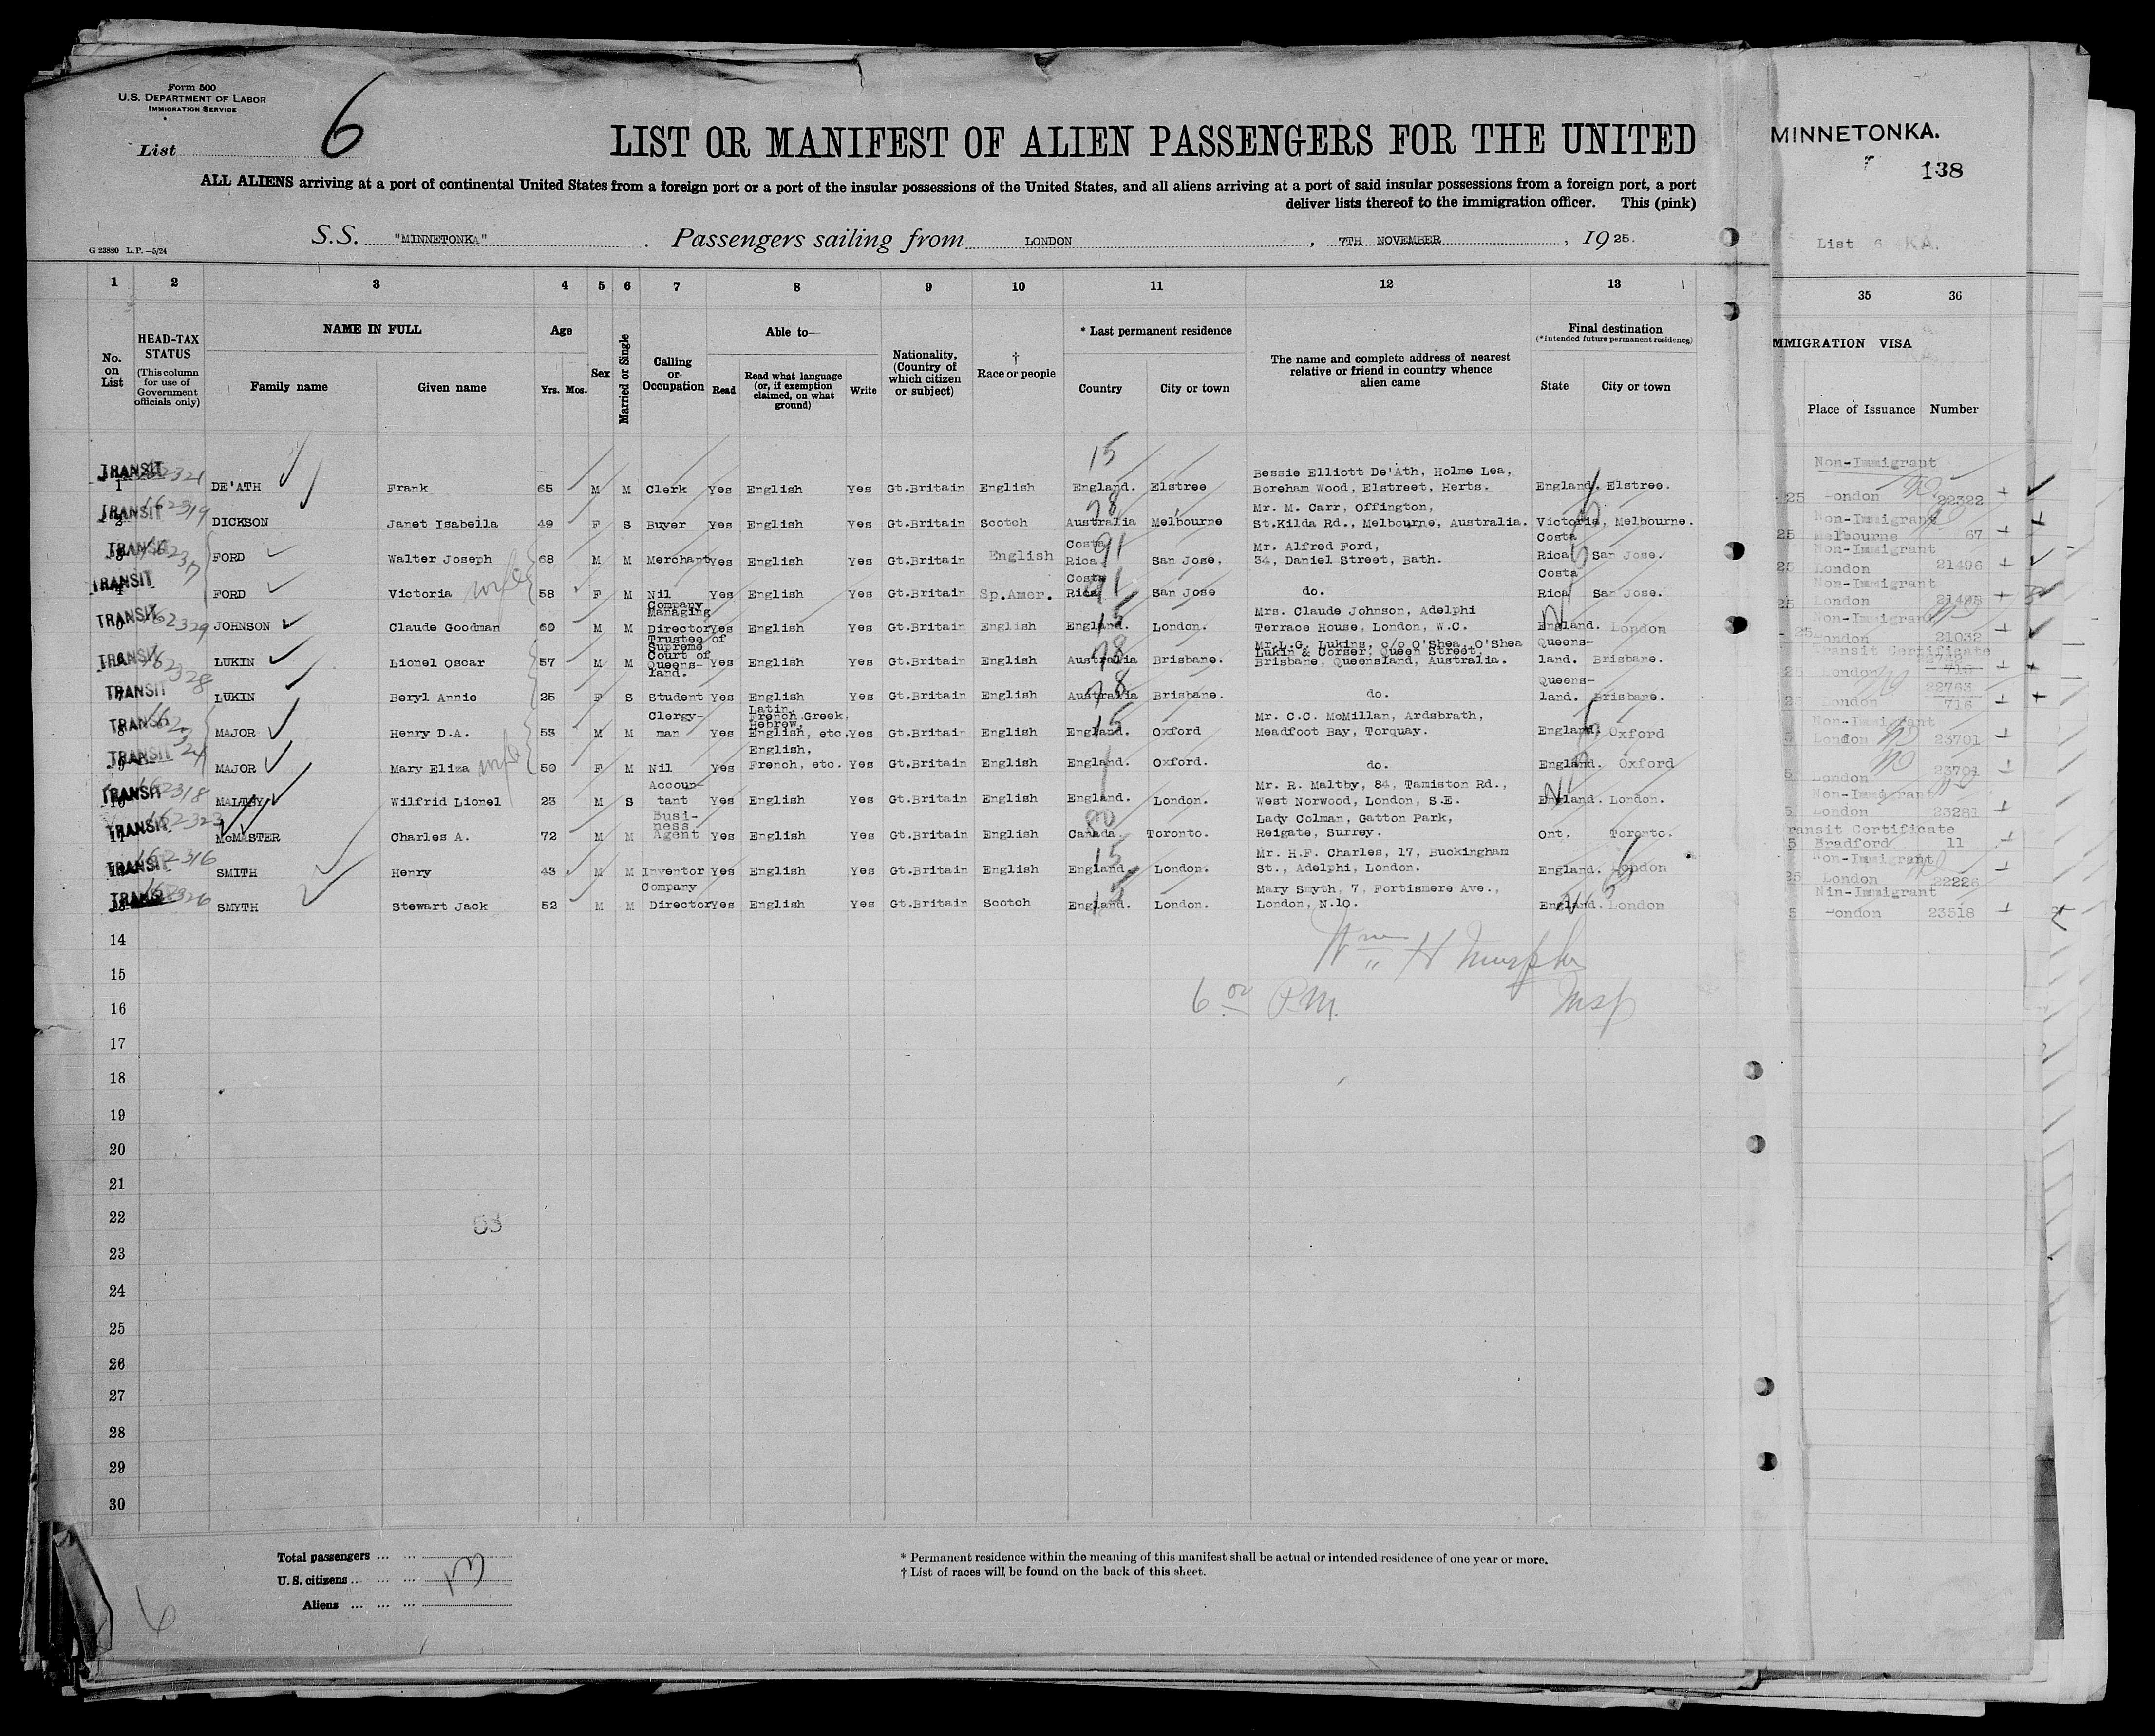 Form 500
U.S. DEPARTMENT OF LABOR
IMMIGRATION SERVICE
List 6
LIST OR MANIFEST OF ALIEN PASSENGERS FOR THE UNITED
ALL ALIENS arriving at a port of continental United States from a foreign port or a port of the insular possessions of the United States, and all aliens arriving at a port of said insular possessions from a foreign port, a port
deliver lists thereof to the immigration officer. This (pink)
G 23880 L.P.—5/24
S.S. "MINNETONKA" . Passengers sailing from LONDON , 7TH NOVEMBER , 19 25.
MINNETONKA.
138
List 6 KA.
1 2 3 4 5 6 7 8 9 10 11 12 13
35 36
No. on List
HEAD-TAX STATUS
(This column for use of Government officials only)
NAME IN FULL
Family name Given name
Age
Yrs. Mos.
Sex
Married or Single
Calling or Occupation
Able to—
Read
Read what language (or, if exemption claimed, on what ground)
Write
Nationality, (Country of which citizen or subject)
† Race or people
* Last permanent residence
Country City or town
The name and complete address of nearest relative or friend in country whence alien came
Final destination
(*Intended future permanent residence)
State City or town
MMIGRATION VISA
Place of Issuance Number
TRANSIT 162321
15
Bessie Elliott De'Ath, Holme Lea,
Non-Immigrant
1 DE'ATH Frank 65 M M Clerk Yes English Yes Gt.Britain English England. Elstree Boreham Wood, Elstreet, Herts. England. Elstree.
25 London 22322
TRANSIT 162319
78
Mr. M. Carr, Offington,
Non-Immigrant
2 DICKSON Janet Isabella 49 F S Buyer Yes English Yes Gt.Britain Scotch Australia Melbourne St.Kilda Rd., Melbourne, Australia. Victoria, Melbourne.
25 Melbourne 67
TRANSIT
91
Mr. Alfred Ford,
Non-Immigrant
3 FORD Walter Joseph 68 M M Merchant Yes English Yes Gt.Britain English Costa Rica San Jose, 34, Daniel Street, Bath. Costa Rica San Jose.
25 London 21496
TRANSIT
91
Non-Immigrant
4 FORD Victoria wife 58 F M Nil Yes English Yes Gt.Britain Sp.Amer. Costa Rica San Jose do. Costa Rica San Jose.
25 London 21495
TRANSIT 162329
15
Mrs. Claude Johnson, Adelphi
Non-Immigrant
5 JOHNSON Claude Goodman 60 M M Company Managing Director Yes English Yes Gt.Britain English England. London. Terrace House, London, W.C. England. London
25 London 21032
TRANSIT 162328
78
Mr.L.G. Lukins, c/o O'Shea, O'Shea
Lukin & Corser, Queen Street,
Transit Certificate
6 LUKIN Lionel Oscar 57 M M Trustee of Supreme Court of Queens-land. Yes English Yes Gt.Britain English Australia Brisbane. Brisbane, Queensland, Australia. Queens-land. Brisbane.
London 716
TRANSIT
78
7 LUKIN Beryl Annie 25 F S Student Yes English Yes Gt.Britain English Australia Brisbane. do. Queens-land. Brisbane.
London 22763 716
TRANSIT
15
Mr. C.C. McMillan, Ardsbrath,
Non-Immigrant
8 MAJOR Henry D.A. 53 M M Clergy-man Yes Latin, French Greek, Hebrew, English, etc. Yes Gt.Britain English England. Oxford Meadfoot Bay, Torquay. England. Oxford
5 London 23701
TRANSIT
9 MAJOR Mary Eliza wife 50 F M Nil Yes English, French, etc. Yes Gt.Britain English England. Oxford. do. England. Oxford
5 London 23701
TRANSIT 162318
Mr. R. Maltby, 84, Tamiston Rd.,
Non-Immigrant
10 MALTBY Wilfrid Lionel 23 M S Accoun-tant Yes English Yes Gt.Britain English England. London. West Norwood, London, S.E. England. London.
5 London 23281
TRANSIT 162323
80
Lady Colman, Gatton Park,
ransit Certificate
11 McMASTER Charles A. 72 M M Busi-ness Agent Yes English Yes Gt.Britain English Canada. Toronto. Reigate, Surrey. Ont. Toronto.
5 Bradford 11
TRANSIT 162316
15
Mr. H.F. Charles, 17, Buckingham
Non-Immigrant
SMITH Henry 43 M M Inventor Yes English Yes Gt.Britain English England. London. St., Adelphi, London. England. London
25 London 22226
TRANS 162326
15
Mary Smyth, 7, Fortismere Ave.,
Nin-Immigrant
13 SMYTH Stewart Jack 52 M M Company Director Yes English Yes Gt.Britain Scotch England. London. London, N.10. England. London
5 London 23518
14
Wm H Murphy
15
16
6 00 P.M. Insp
17
18
19
20
21
22
53
23
24
25
26
27
28
29
30
Total passengers ... ...
U.S. citizens ... ... ...
Aliens ... ... ...
13
6
* Permanent residence within the meaning of this manifest shall be actual or intended residence of one year or more.
† List of races will be found on the back of this sheet.